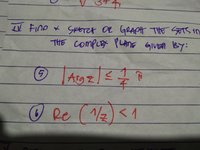 IV FIND & SKETCH OR GRAPH THE SETS IN
THE COMPLEX PLANE GIVEN BY:
⑤ |Arg z| ≤ 1/4 π
⑥ Re (1/z) < 1